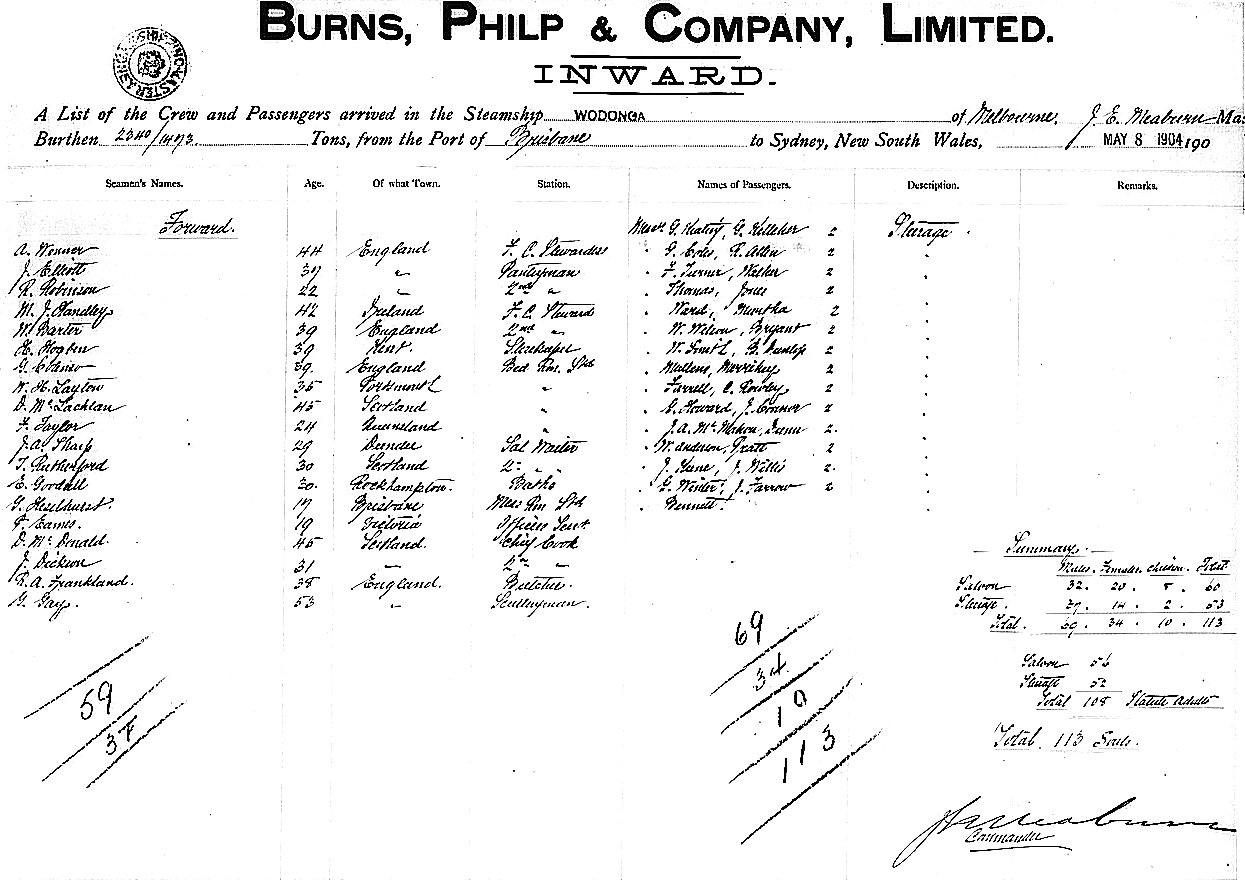 BURNS, PHILP & COMPANY, LIMITED.
INWARD.
A List of the Crew and Passengers arrived in the Steamship WODONGA of Melbourne, J. E. Meaburn Ma
Burthen 2340/1473 Tons, from the Port of Brisbane to Sydney, New South Wales, MAY 8 1904 190
Seamen's Names. Age. Of what Town. Station. Names of Passengers. Description. Remarks.
Forward. Messrs G. Healy, G. Kelleher 2 Steerage
A. Wenner 44 England F. C. Stewardess G. Coles, R. Allen 2
J. Elliott 37 " Pantryman F. Turner, Walker 2
R. Robinson 22 " 2nd " Thomas, Jones 2
M. J. Handley 42 Ireland F. C. Steward Ward, Murtha 2
W. Barter 39 England 2nd " W. Wilson, Bryant 2
H. Hogben 39 Kent. W. Smith, B. Dunlop 2
G. 39. England Bed Rm. Std Mullens, Merrikey 2
W. H. Layton 35 Portsmouth " Farrell, C. Rowley 2
D. McLachlan 45 Scotland " G. Howard, J. Connor 2
F. Taylor 24 Queensland " J. A. McMahon, Dunn 2.
J. A. Sharp 29 Dundee Sal Waiter W. Anderson, Pratt 2
T. Rutherford 30 Scotland " " J. Kane, J. Willis 2.
E. Goodall 30. Rockhampton. Baths G. Winter, J. Farrow 2
G. Heselhurst. 17 Brisbane Mess Rm Std Bennett.
F. Eames. 19 Victoria Officers Servt
D. McDonald. 45 Scotland. Chief Cook
J. Dickson 31 " 2nd "
R. A. Frankland. 38 England. Butcher.
G. Gay. 53 " Sculleryman.
Summary.
Males. Females. Children. Total
Saloon 32. 20. 8. 60
Steerage. 37. 14. 2. 53
Total. 69. 34. 10. 113
Saloon 56
Steerage 52
Total 108 Statute Adults
Total. 113 Souls.
59
37
69
34
10
113
J. E. Meaburn
Commander